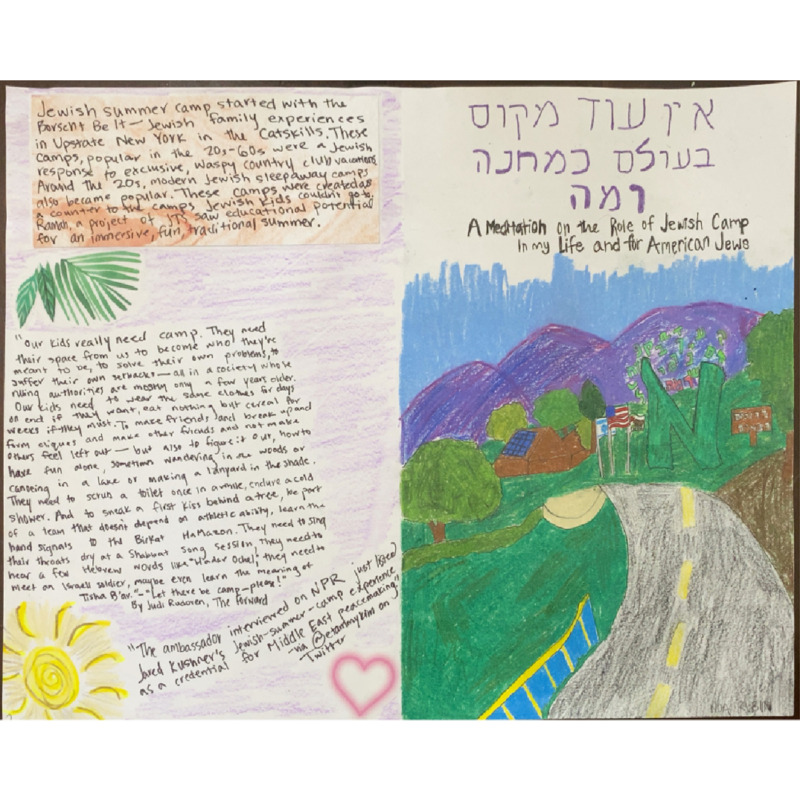 Jewish summer camp started with the
Borscht Belt — Jewish family experiences
in Upstate New York in the Catskills. These
camps, popular in the 20s-60s were a Jewish
response to exclusive, waspy country club vacations.
Around the 20s, modern Jewish sleepaway camps
also became popular. These camps were created as
a counter to the camps Jewish kids couldn't go to.
Ramah, a project of JTS saw educational potential
for an immersive, fun, traditional summer.
"Our kids really need camp. They need
their space from us to become who they're
meant to be, to solve their own problems, to
suffer their own setbacks — all in a society whose
ruling authorities are mostly only a few years older.
Our kids need to wear the same clothes for days
on end if they want, eat nothing but cereal for
weeks if they must. To make friends and break up and
form cliques and make other friends and not make
others feel left out — but also to figure it out, how to
have fun alone, sometimes wandering in the woods or
canoeing in a lake or making a lanyard in the shade.
They need to scrub a toilet once in awhile, endure a cold
shower. And to sneak a first kiss behind a tree, be part
of a team that doesn't depend on athletic ability, learn the
hand signals to the Birkat HaMazon. They need to sing
their throats dry at a Shabbat song session. They need to
hear a few Hebrew words like "Hadar Ochel", they need to
meet an Israeli soldier, maybe even learn the meaning of
Tisha B'av." - "Let there be camp—please!"
By Judi Rudoren, The Forward
"The ambassador interviewed on NPR just listed
Jared Kushner's Jewish-summer-camp experience
as a credential for Middle East peacemaking."
-via @etanhaykim on
Twitter
אין עוד מקום
בעולם כמחנה
רמה
A Meditation on the Role of Jewish Camp
In my Life and for American Jews
RUBIN